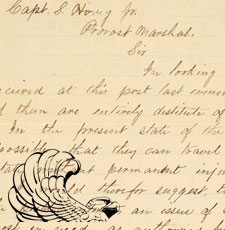 Capt. S. Hovey Jr.
Provost Marshal.
Sir
In looking
ceived at this post last
d them are entirely destitute of
In the present state of the
possible that they can travel
permanent inju
therefor suggest, t
an issue of
as authorized